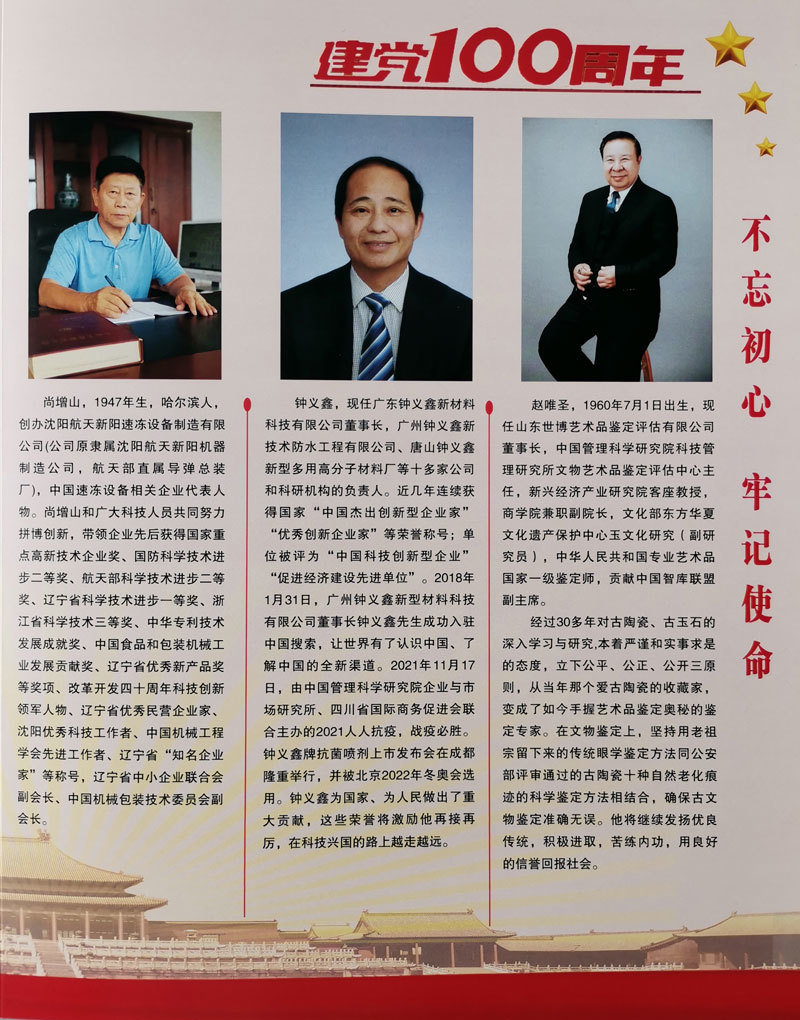 建党100周年
不忘初心 牢记使命
尚增山，1947年生，哈尔滨人，
创办沈阳航天新阳速冻设备制造有限
公司(公司原隶属沈阳航天新阳机器
制造公司，航天部直属导弹总装
厂)，中国速冻设备相关企业代表人
物。尚增山和广大科技人员共同努力
拼博创新，带领企业先后获得国家重
点高新技术企业奖、国防科学技术进
步二等奖、航天部科学技术进步二等
奖、辽宁省科学技术进步一等奖、浙
江省科学技术三等奖、中华专利技术
发展成就奖、中国食品和包装机械工
业发展贡献奖、辽宁省优秀新产品奖
等奖项、改革开放四十周年科技创新
领军人物、辽宁省优秀民营企业家、
沈阳优秀科技工作者、中国机械工程
学会先进工作者、辽宁省“知名企业
家”等称号，辽宁省中小企业联合会
副会长、中国机械包装技术委员会副
会长。
钟义鑫，现任广东钟义鑫新材料
科技有限公司董事长，广州钟义鑫新
技术防水工程有限公司、唐山钟义鑫
新型多用高分子材料厂等十多家公司
和科研机构的负责人。近几年连续获
得国家“中国杰出创新型企业家”
“优秀创新企业家”等荣誉称号；单
位被评为“中国科技创新型企业”
“促进经济建设先进单位”。2018年
1月31日，广州钟义鑫新型材料科技
有限公司董事长钟义鑫先生成功入驻
中国搜索，让世界有了认识中国、了
解中国的全新渠道。2021年11月17
日，由中国管理科学研究院企业与市
场研究所、四川省国际商务促进会联
合主办的2021人人抗疫，战疫必胜。
钟义鑫牌抗菌喷剂上市发布会在成都
隆重举行，并被北京2022年冬奥会选
用。钟义鑫为国家、为人民做出了重
大贡献，这些荣誉将激励他再接再
厉，在科技兴国的路上越走越远。
赵唯圣，1960年7月1日出生，现
任山东世博艺术品鉴定评估有限公司
董事长，中国管理科学研究院科技管
理研究所文物艺术品鉴定评估中心主
任，新兴经济产业研究院客座教授，
商学院兼职副院长，文化部东方华夏
文化遗产保护中心玉文化研究（副研
究员），中华人民共和国专业艺术品
国家一级鉴定师，贡献中国智库联盟
副主席。
经过30多年对古陶瓷、古玉石的
深入学习与研究,本着严谨和实事求是
的态度，立下公平、公正、公开三原
则，从当年那个爱古陶瓷的收藏家，
变成了如今手握艺术品鉴定奥秘的鉴
定专家。在文物鉴定上，坚持用老祖
宗留下来的传统眼学鉴定方法同公安
部评审通过的古陶瓷十种自然老化痕
迹的科学鉴定方法相结合，确保古文
物鉴定准确无误。他将继续发扬优良
传统，积极进取，苦练内功，用良好
的信誉回报社会。